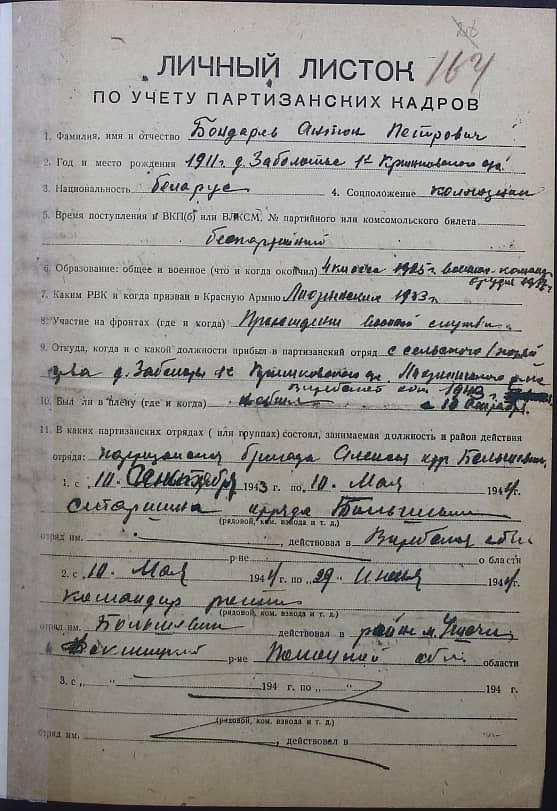 164
ЛИЧНЫЙ ЛИСТОК
ПО УЧЕТУ ПАРТИЗАНСКИХ КАДРОВ
1. Фамилия, имя и отчество Бондарев Антон Петрович
2. Год и место рождения 1911 г. д. Заболотье
3. Национальность беларус 4. Соцположение колхозник
5. Время поступления в ВКП(б) или ВЛКСМ, № партийного или комсомольского билета
беспартийный
6. Образование: общее и военное (что и когда окончил) 4 класса 1925 г.
7. Каким РВК и когда призван в Красную Армию Лиозненским 1933 г.
8. Участие на фронтах (где и когда) службы
9. Откуда, когда и с какой должности прибыл в партизанский отряд с сельского
д. Лиозненского
Витебской обл. 1943 г.
10. Был ли в плену (где и когда) не был с 10 сентября
11. В каких партизанских отрядах (или группах) состоял, занимаемая должность и район действия
отряда: партизанская бригада Алексея Большевик
1. с „ 10 сентября 1943 г. по „ 10 „ Мая 1944 г.
старшина отряда Большевик
(рядовой, ком. взвода и т. д.)
отряд им. , действовал в Витебской обл.
р-не о области
2. с „ 10 „ Мая 1944 г. по „ 29 „ Июня 1944 г.
командир роты
(рядовой, ком. взвода и т. д.)
отряд им. Большевик действовал в район м. Ушачи
р-не Полоцкой обл. области
3. с „ “ 194 г. по „ “ 194 г.
(рядовой, ком. взвода и т. д.)
отряд им. , действовал в